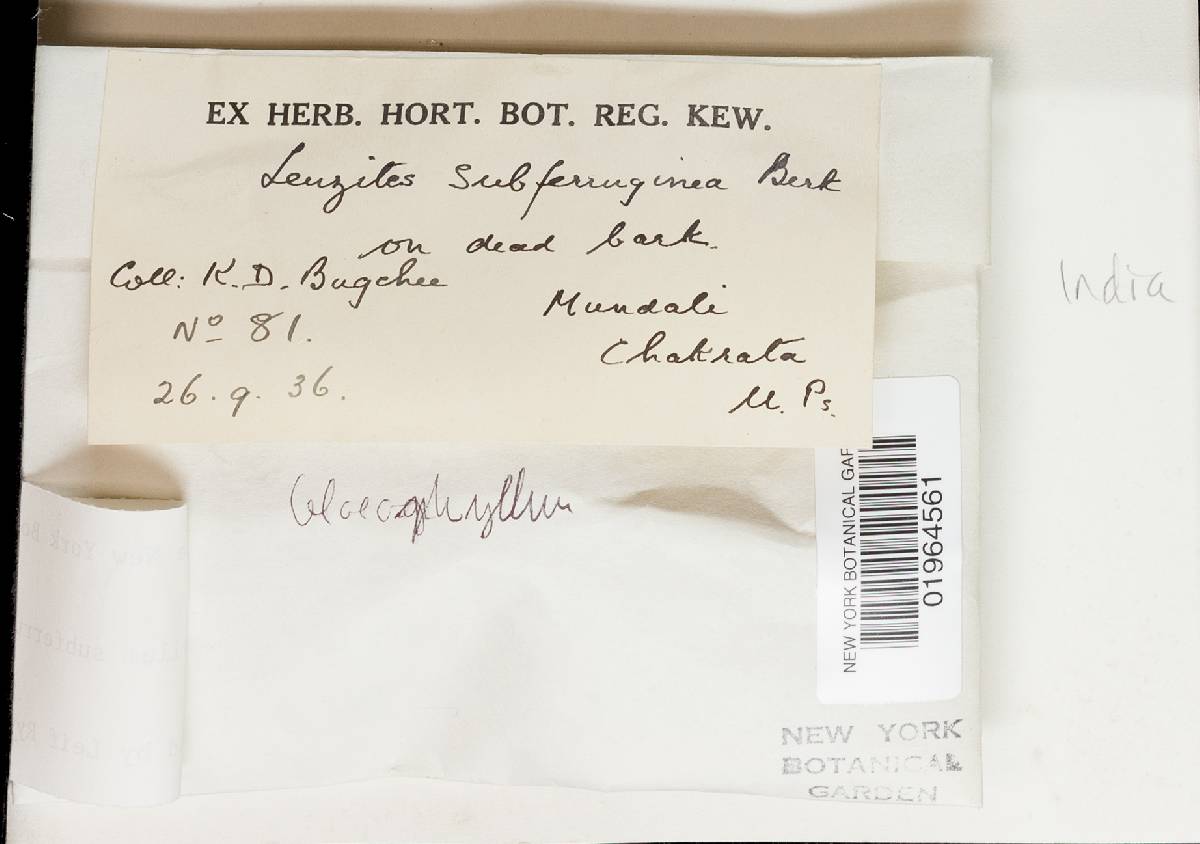 EX HERB. HORT. BOT. REG. KEW.
Lenzites subferruginea Berk
on dead bark.
Coll: K. D. Bagchee
Mundali
No 81.
Chakrata
26. 9. 36.
U. Ps.
India
Gloeophyllum
NEW YORK BOTANICAL GAR
01964561
NEW YORK
BOTANICAL
GARDEN